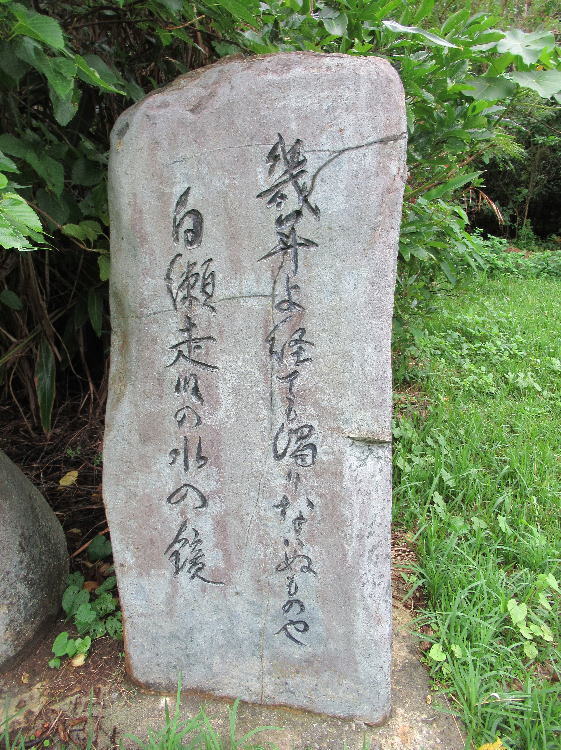 幾年よ経ても濁りなぬものや
白瀬走川の水の鏡